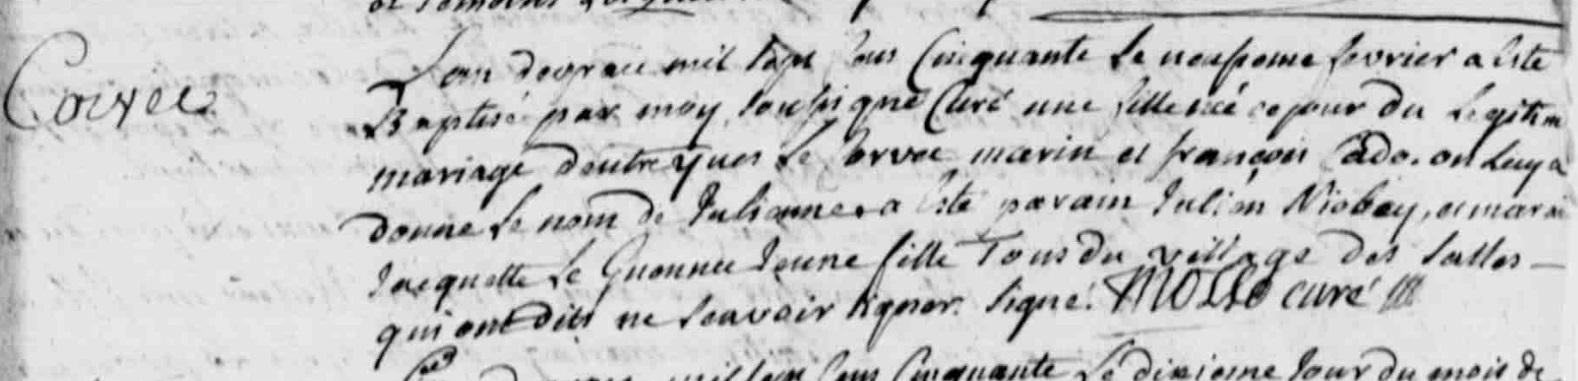 Corvec
L'an de grace mil sept cens Cinquante le neufieme fevrier a este
Baptisé par moy soussigné Curé une fille née ce jour du Legitim
mariage d'entre yves Le Corvec marin et françois Cado. on luy a
donne le nom de Julienne. a esté parain Julien Niobey, et marai
Jacquette Le Guennec Jeune fille Tous du village des salles
qui ont dits ne scavoir signer. Signé. curé
Cinquante Le dixieme Jour du mois de